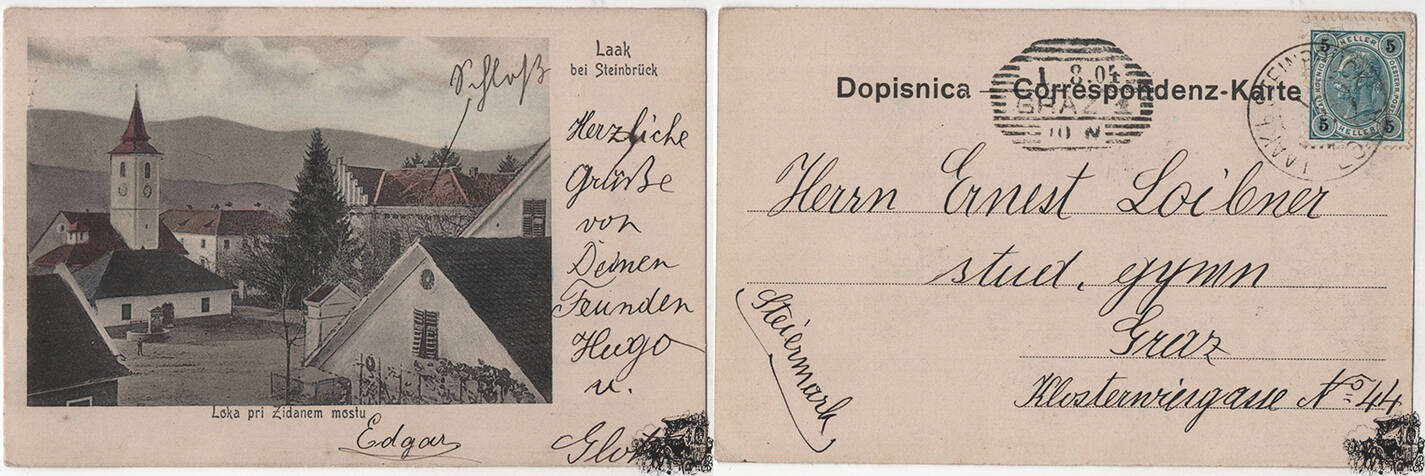 Laak
bei Steinbrück
Schloß
Herzliche
Grüße
von
Deinen
Feunden
Hugo
u.
Edgar
Loka pri Zidanem mostu
Dopisnica – Correspondenz-Karte
1.8.04
GRAZ 1
10 N
5 HELLER 5
5 HELLER 5
Herrn Ernest Loibner
stud. gymn
Graz
Klosterwiesgasse No 44
Steiermark